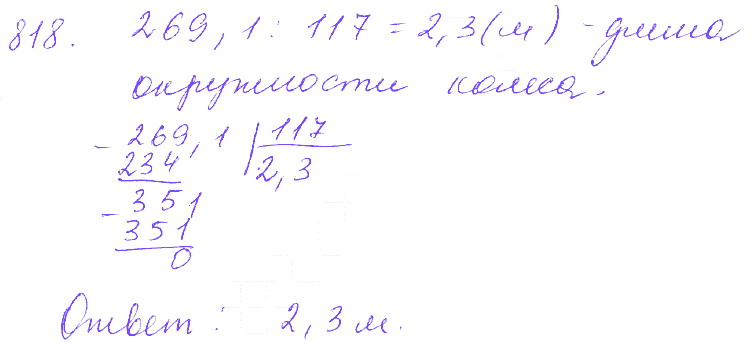 818. 269,1 : 117 = 2,3 (м) - длина
окружности колеса.
- 269,1 | 117
234 2,3
- 351
351
0
Ответ : 2,3 м.